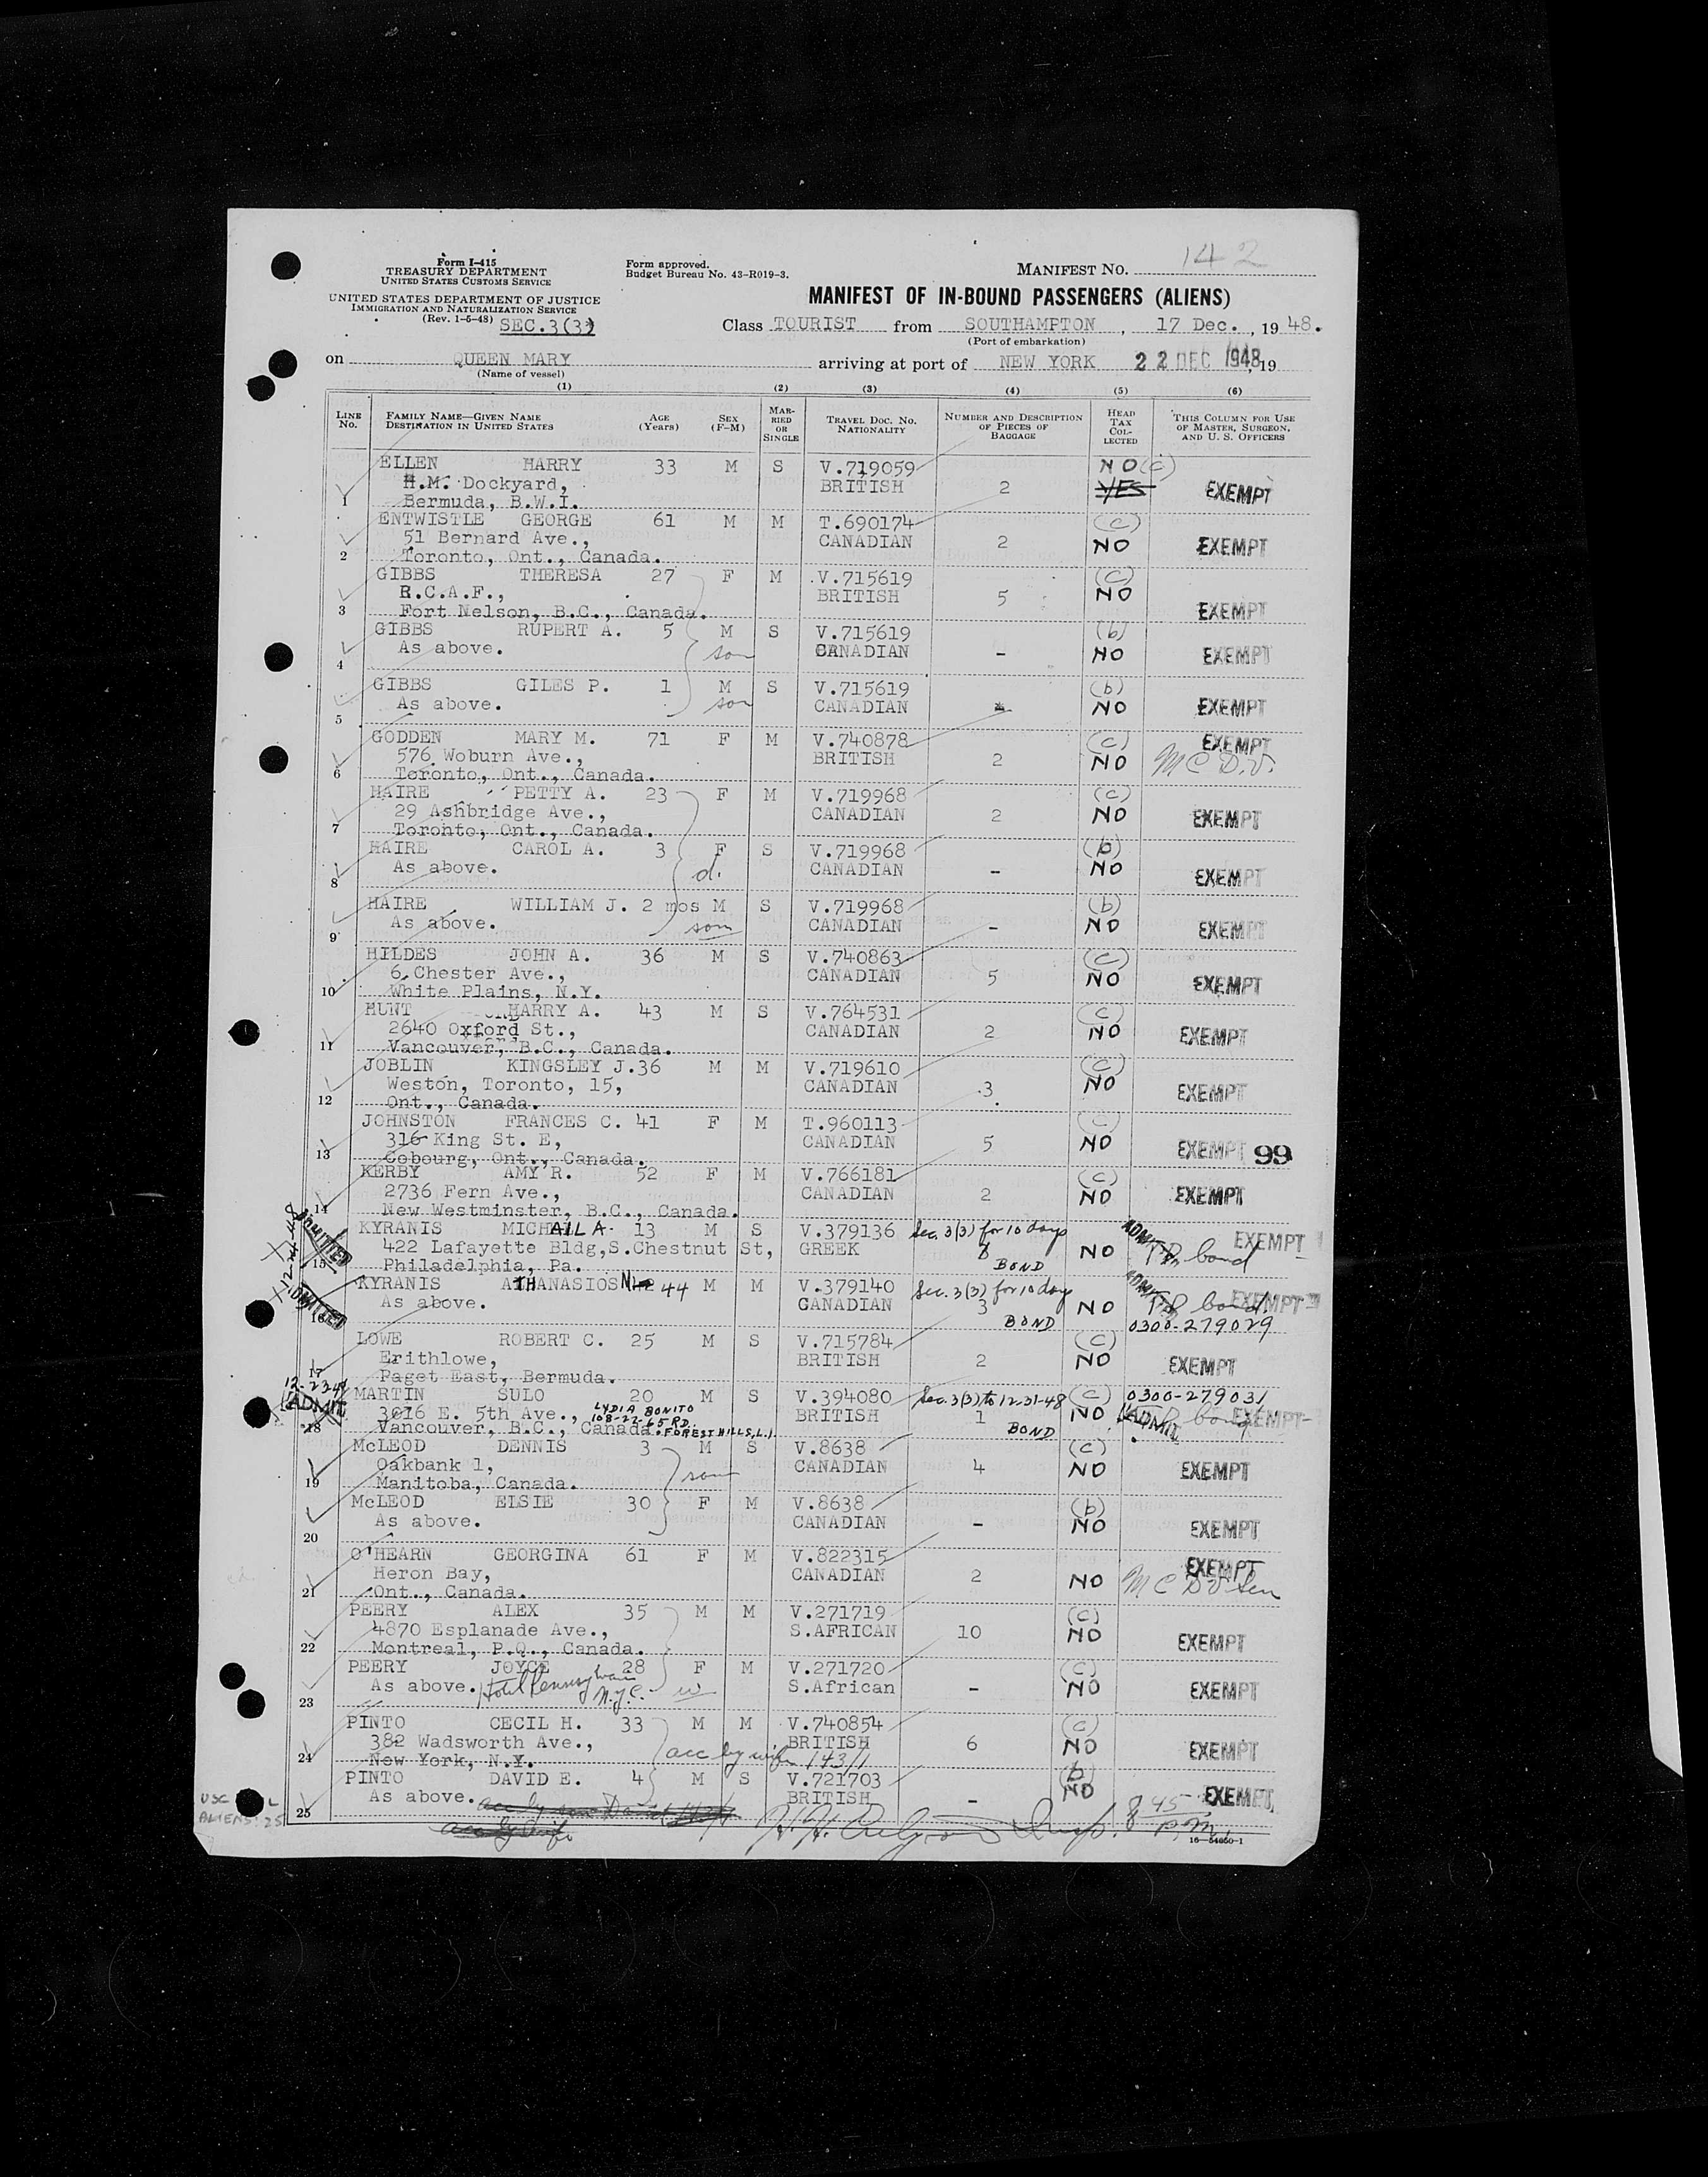 Form I-415
TREASURY DEPARTMENT
UNITED STATES CUSTOMS SERVICE
UNITED STATES DEPARTMENT OF JUSTICE
IMMIGRATION AND NATURALIZATION SERVICE
(Rev. 1-5-48) SEC.3(3)
Form approved.
Budget Bureau No. 43-R019-3.
MANIFEST NO. 142
MANIFEST OF IN-BOUND PASSENGERS (ALIENS)
Class TOURIST from SOUTHAMPTON, 17 Dec., 1948.
(Port of embarkation)
on QUEEN MARY arriving at port of NEW YORK 22 DEC 1948, 19
(Name of vessel)
(1) (2) (3) (4) (5) (6)
LINE No. FAMILY NAME—GIVEN NAME DESTINATION IN UNITED STATES AGE (Years) SEX (F-M) MARRIED OR SINGLE TRAVEL DOC. NO. NATIONALITY NUMBER AND DESCRIPTION OF PIECES OF BAGGAGE HEAD TAX COLLECTED THIS COLUMN FOR USE OF MASTER, SURGEON, AND U. S. OFFICERS
ELLEN HARRY 33 M S V.719059 NO (c)
H.M. Dockyard, BRITISH 2 YES EXEMPT
1 Bermuda, B.W.I.
ENTWISTLE GEORGE 61 M M T.690174 (c)
51 Bernard Ave., CANADIAN 2 NO EXEMPT
2 Toronto, Ont., Canada.
GIBBS THERESA 27 F M V.715619 (c)
R.C.A.F., BRITISH 5 NO
3 Fort Nelson, B.C., Canada. EXEMPT
GIBBS RUPERT A. 5 M S V.715619 (b)
As above. son CANADIAN - NO EXEMPT
4
GIBBS GILES P. 1 M S V.715619 (b)
As above. son CANADIAN NO EXEMPT
5
GODDEN MARY M. 71 F M V.740878 (c) EXEMPT
576 Woburn Ave., BRITISH 2 NO M C D.V.
6 Toronto, Ont., Canada.
HAIRE PETTY A. 23 F M V.719968 (c)
29 Ashbridge Ave., CANADIAN 2 NO EXEMPT
7 Toronto, Ont., Canada.
HAIRE CAROL A. 3 F S V.719968 (b)
As above. d. CANADIAN - NO EXEMPT
8
HAIRE WILLIAM J. 2 mos M S V.719968 (b)
As above. son CANADIAN - NO EXEMPT
9
HILDES JOHN A. 36 M S V.740863 (c)
6 Chester Ave., CANADIAN 5 NO EXEMPT
10 White Plains, N.Y.
HUNT HARRY A. 43 M S V.764531 (c)
2640 Oxford St., CANADIAN 2 NO EXEMPT
11 Vancouver, B.C., Canada.
JOBLIN KINGSLEY J. 36 M M V.719610 (c)
Weston, Toronto, 15, CANADIAN 3 NO EXEMPT
12 Ont., Canada.
JOHNSTON FRANCES C. 41 F M T.960113 (c)
316 King St. E, CANADIAN 5 NO EXEMPT 99
13 Cobourg, Ont., Canada.
KERBY AMY R. 52 F M V.766181 (c)
2736 Fern Ave., CANADIAN 2 NO EXEMPT
14 New Westminster, B.C., Canada.
KYRANIS MICHAIL A. 13 M S V.379136 Sec. 3(3) for 10 days ADMITTED EXEMPT
422 Lafayette Bldg, S.Chestnut St, GREEK 8 NO bond
15 Philadelphia, Pa. BOND
12-24-48 ADMITTED
KYRANIS ATHANASIOS N. 44 M M V.379140 Sec. 3(3) for 10 days ADMITTED
As above. CANADIAN 3 NO bond EXEMPT
16 BOND 0300-279029
ADMITTED
LOWE ROBERT C. 25 M S V.715784 (c)
Erithlowe, BRITISH 2 NO EXEMPT
17 Paget East, Bermuda.
12-23-48 ADMIT
MARTIN SULO 20 M S V.394080 Sec. 3(3) to 12-31-48 (c) 0300-279031
3016 E. 5th Ave., LYDIA BONITO BRITISH 1 NO ADMIT bond EXEMPT
108-22-65 RD.
18 Vancouver, B.C., Canada. FOREST HILLS, L.I. BOND
McLEOD DENNIS 3 M S V.8638 (c)
Oakbank 1, son CANADIAN 4 NO EXEMPT
19 Manitoba, Canada.
McLEOD ELSIE 30 F M V.8638 (b)
As above. CANADIAN - NO EXEMPT
20
O'HEARN GEORGINA 61 F M V.822315 EXEMPT
Heron Bay, CANADIAN 2 NO M C D V Sen
21 Ont., Canada.
PEERY ALEX 35 M M V.271719 (c)
4870 Esplanade Ave., S.AFRICAN 10 NO EXEMPT
22 Montreal, P.Q., Canada.
PEERY JOYCE 28 F M V.271720 (c)
As above. Hotel Pennsylvania N.Y.C. w S.African - NO EXEMPT
23
PINTO CECIL H. 33 M M V.740854 (c)
382 Wadsworth Ave., BRITISH 6 NO EXEMPT
24 New York, N.Y. acc by wife 143/1
PINTO DAVID E. 4 M S V.721703 (b)
As above. BRITISH - NO EXEMPT
25
USC L
ALIENS: 25
acc by wife
Insp. 8 45 P.M.
16—54650-1